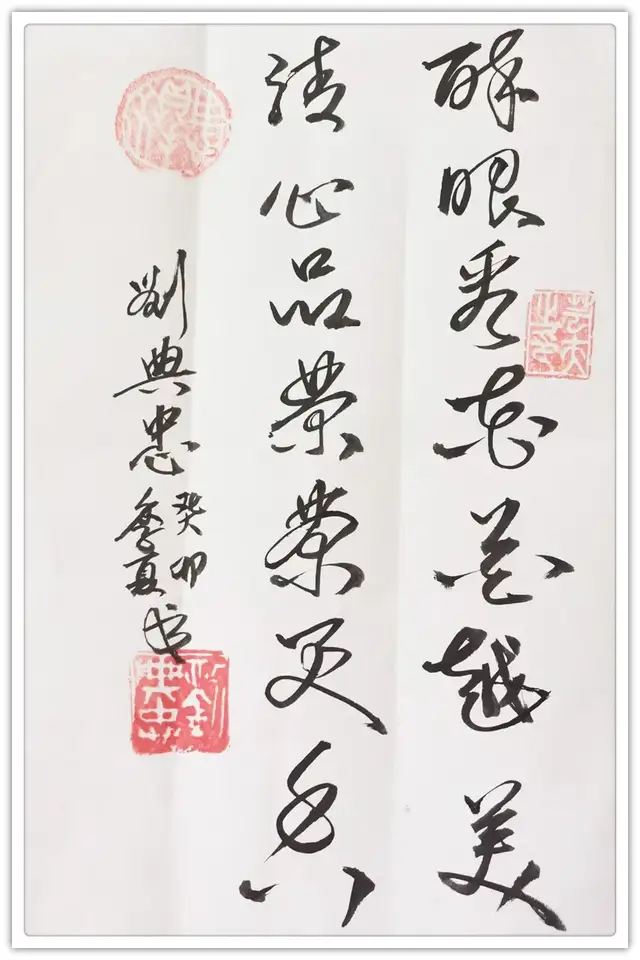 醉眼看花花越美
清心品茶茶更香
劉典忠
癸卯
季夏书
劉典忠